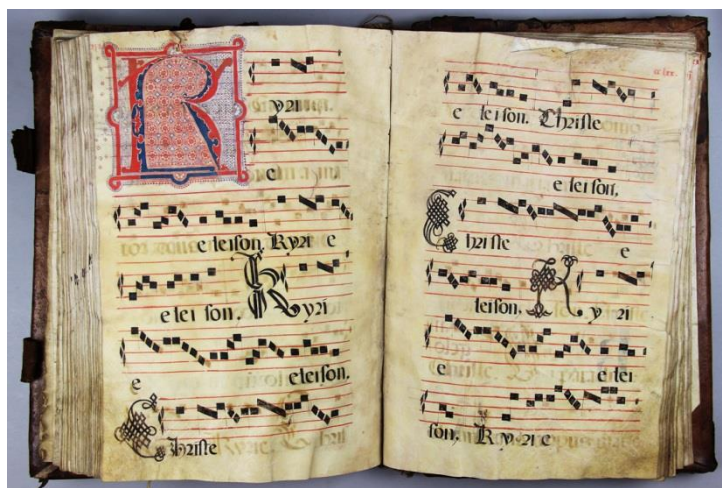 K yri
e
e leison. Kyri e
e lei son. K yri
e eleison.
Christe
e leison. Christe
e leison,
Christe e
leison, K yri
e e lei
son. Kyrie e